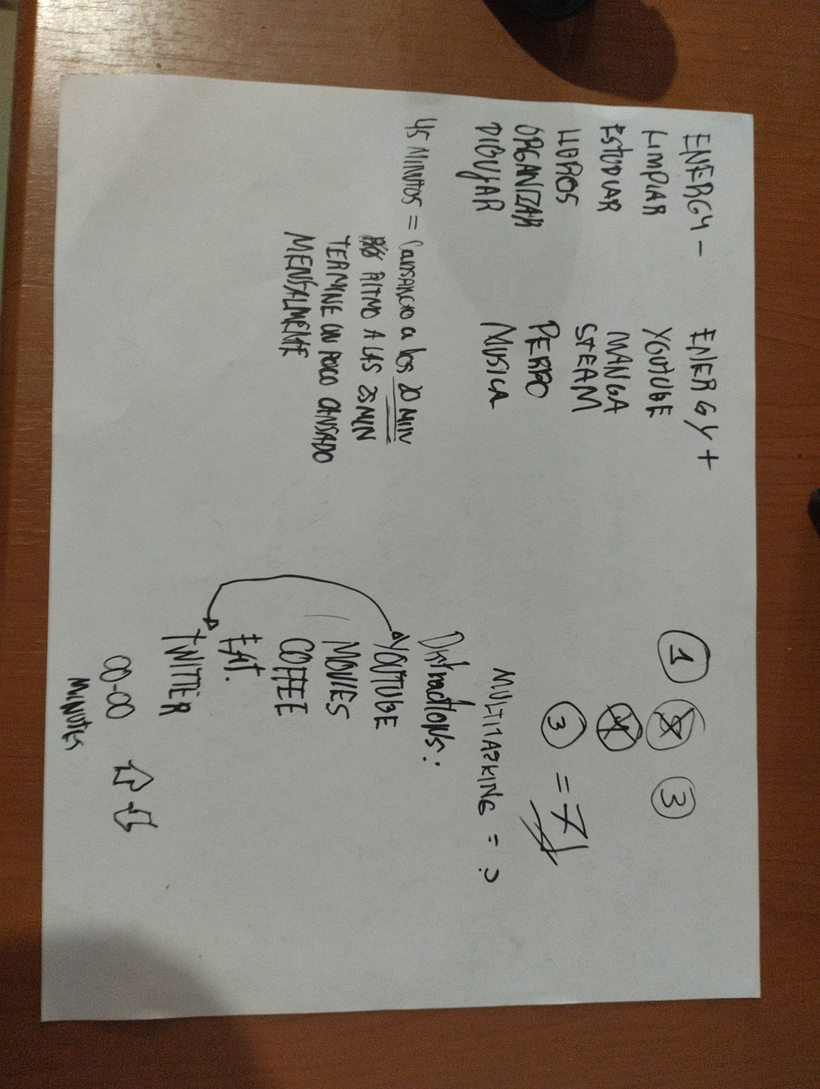 ENERGY -
LIMPIAR
ESTUDIAR
LIBROS
ORGANIZAR
DIBUJAR
ENERGY +
YOUTUBE
MANGA
STEAM
PERRO
MUSICA
45 MINUTOS = Cansancio a los 20 MIN
RITMO A LAS 25 MIN
TERMINE UN POCO CANSADO
MENTALMENTE
1 3
3 = 7
MULTITASKING = ?
Distractions:
YOUTUBE
MOVIES
COFFEE
EAT.
TWITTER
00-00
MINUTES